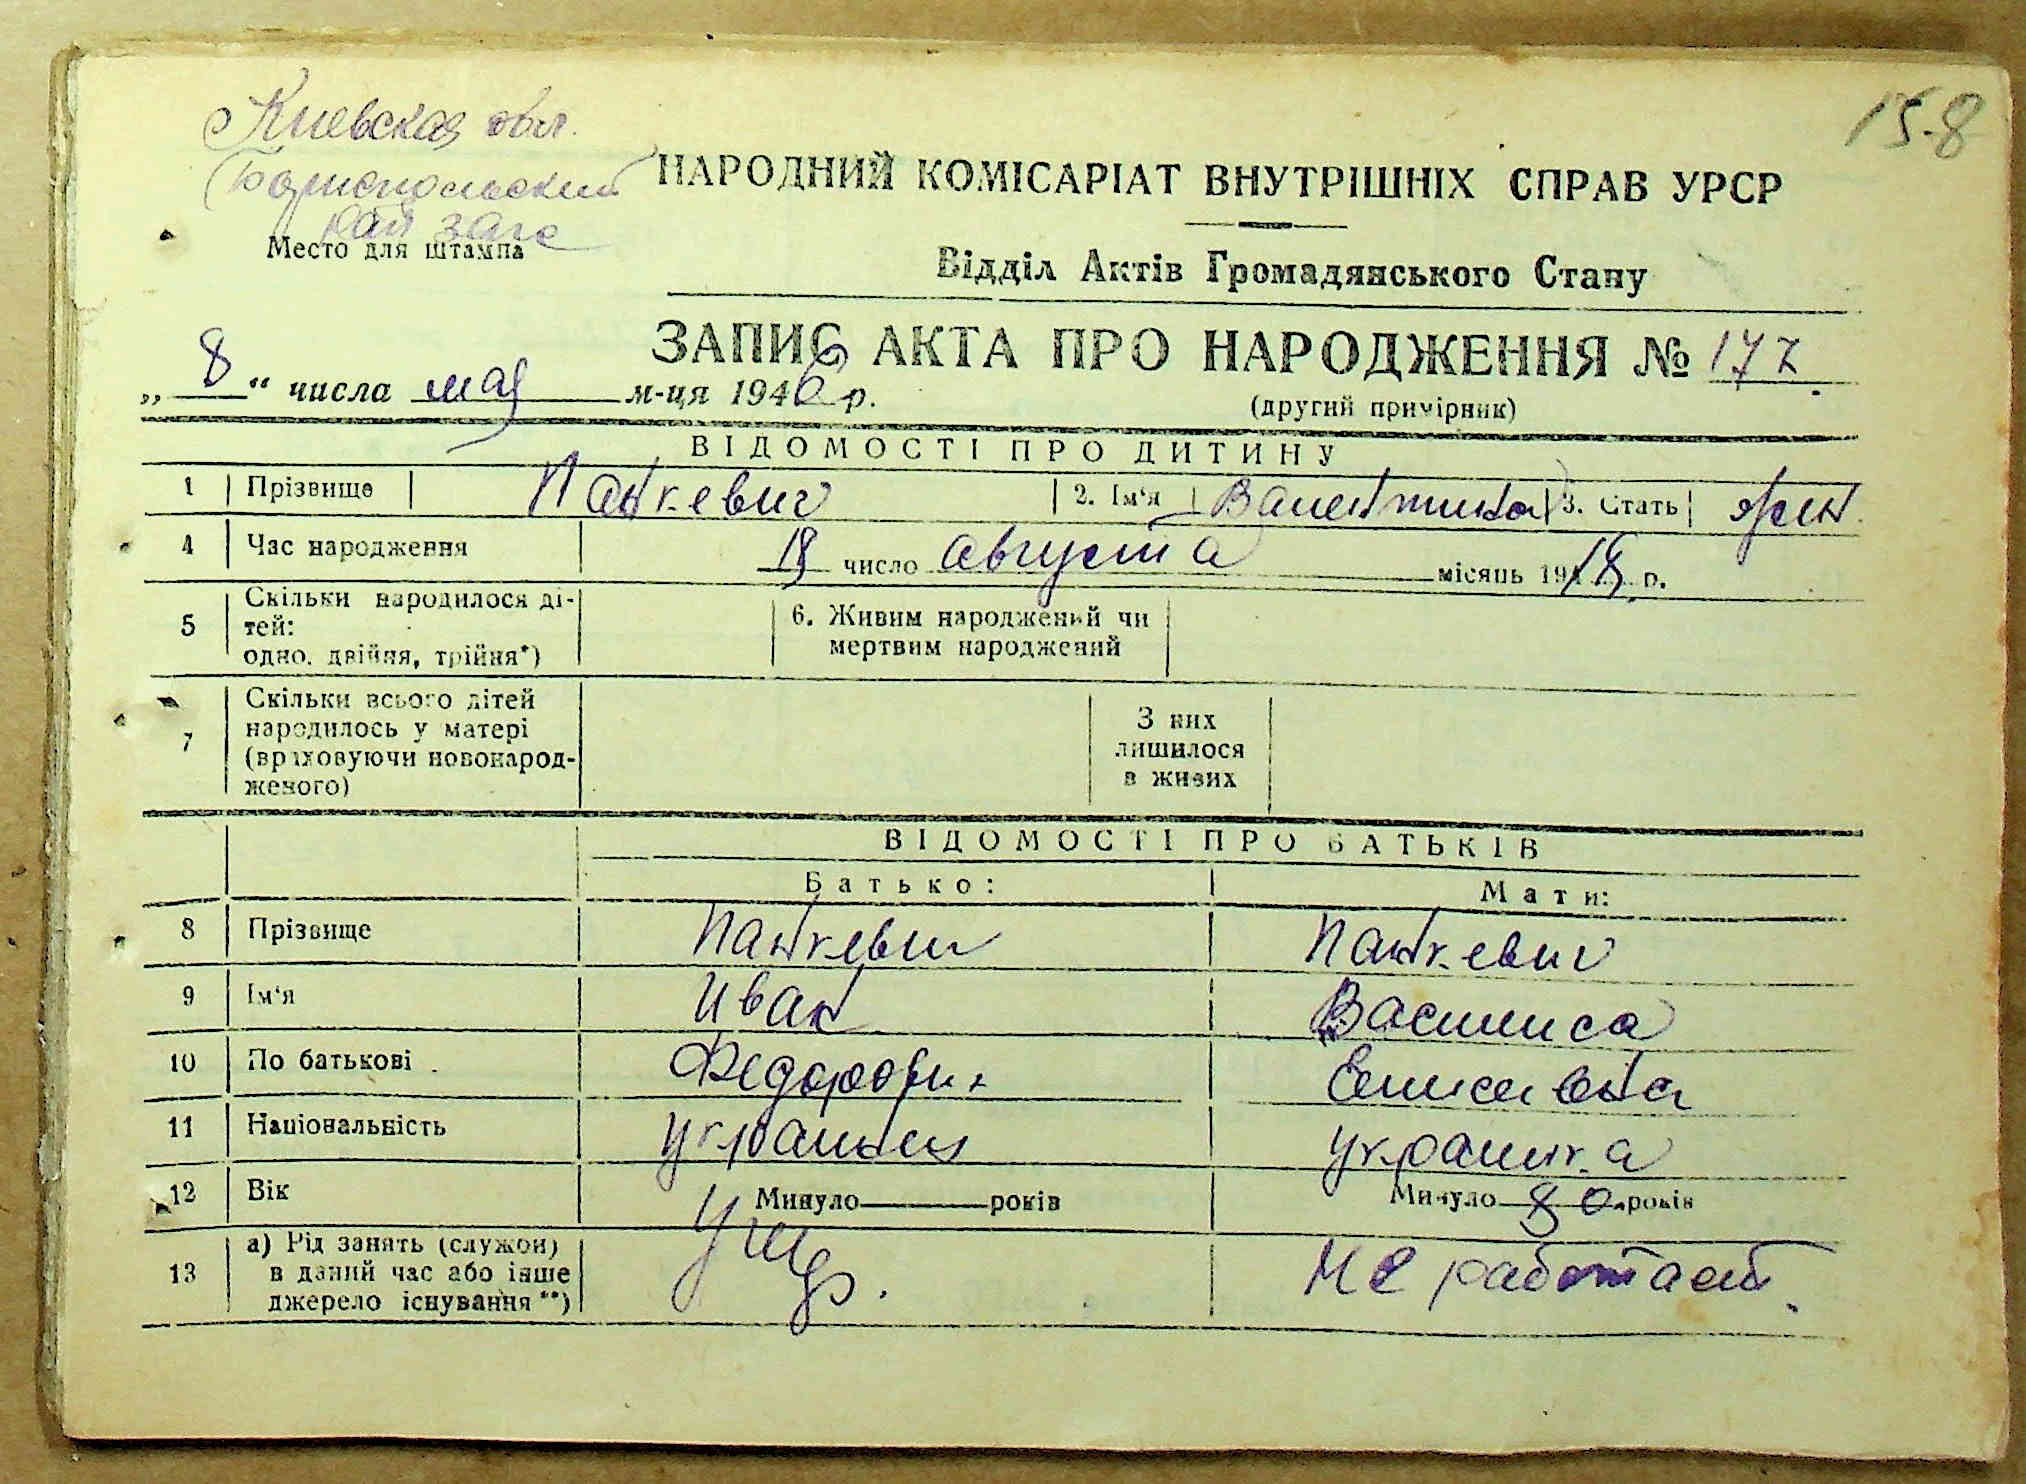 Киевская обл.
Бориспольский
рай загс
15-8
НАРОДНИЙ КОМІСАРІАТ ВНУТРІШНІХ СПРАВ УРСР
Место для штампа
Відділ Актів Громадянського Стану
ЗАПИС АКТА ПРО НАРОДЖЕННЯ № 177
„ 8 “ числа мая м-ця 1946 р.
(другий примірник)
ВІДОМОСТІ ПРО ДИТИНУ
1 Прізвище Панкевич 2. Ім‘я Валентина 3. Стать жен.
4 Час народження 18 число августа місяць 1918 р.
5 Скільки народилося ді-
тей:
одно, двійня, трійня*)
6. Живим народжений чи
мертвим народжений
7 Скільки всього дітей
народилось у матері
(враховуючи новонарод-
женого)
З них
лишилося
в живих
ВІДОМОСТІ ПРО БАТЬКІВ
Батько: Мати:
8 Прізвище Панкевич Панкевич
9 Ім‘я Иван Василиса
10 По батькові Федорович Елисеевна
11 Національність украинец украинка
12 Вік Минуло років Минуло 80 років
13 а) Рід занять (служби)
в даний час або інше
джерело існування**)
Не работает.